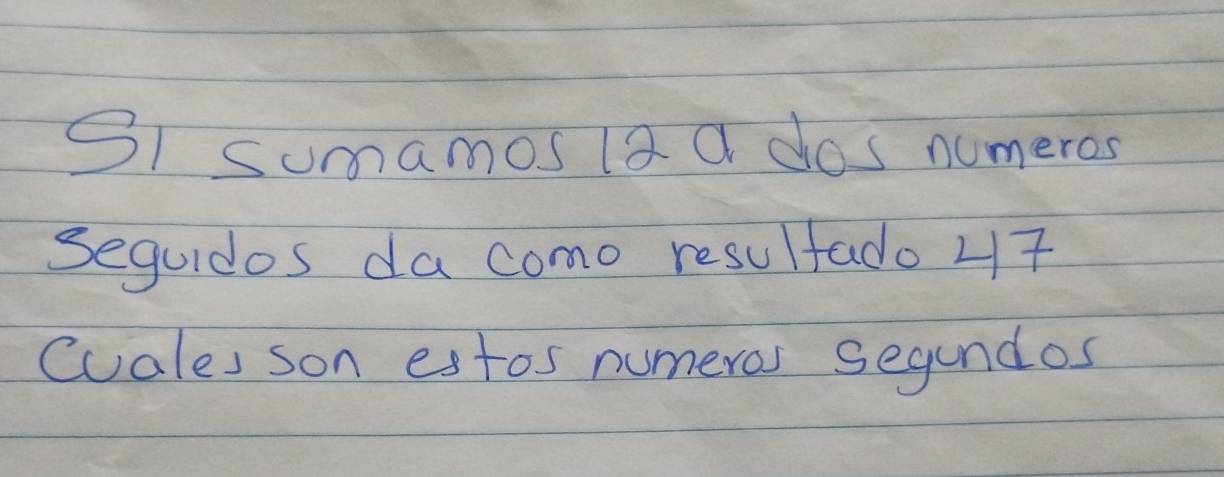 SI sumamos 12 a dos numeros
seguidos da como resultado 47
Cuales son estos numeros segundos